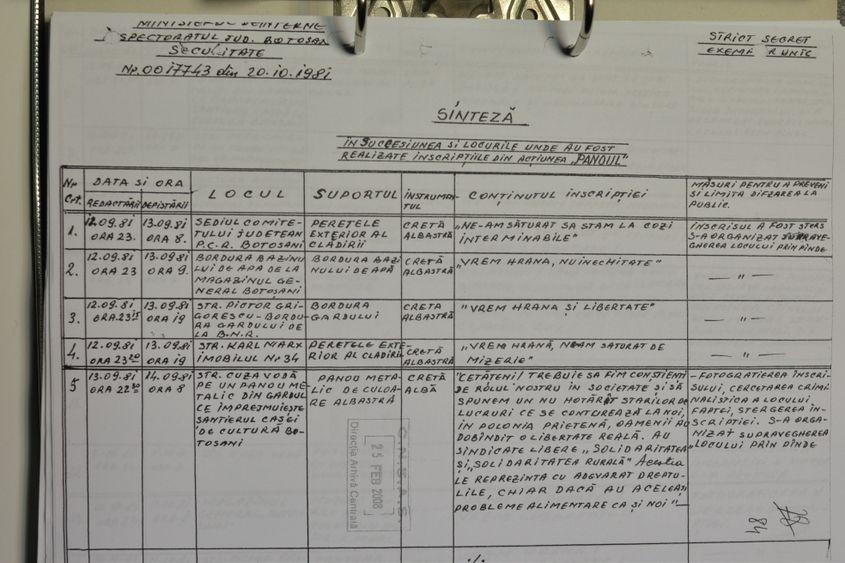 MINISTERUL DE INTERNE
SPECTORATUL JUD. BOTOȘAN
SECURITATE
Nr. 0017743 din 20.10.1981
STRICT SECRET
EXEMP R UNIC
SINTEZĂ
ÎN SUCCESIUNEA SI LOCURILE UNDE AU FOST
REALIZATE INSCRIPȚIILE DIN ACȚIUNEA „PANOUL"
Nr. Crt.
DATA SI ORA
REDACTĂRII
DEPISTĂRII
LOCUL
SUPORTUL
INSTRUMEN-
TUL
CONȚINUTUL INSCRIPȚIEI
MĂSURI PENTRU A PREVENI
SI LIMITA DIFZAREA LA
PUBLIC.
1.
12.09.81
ORA 23.
13.09.81
ORA 8.
SEDIUL COMITE-
TULUI JUDETEAN
P.C.R. BOTOSANI
PERETELE
EXTERIOR AL
CLĂDIRII
CRETĂ
ALBASTRĂ
„NE-AM SĂTURAT SA STAM LA COZI
INTERMINABILE"
INSCRISUL A FOST ȘTERS
S-A ORGANIZAT SUPRAVE-
GHEREA LOCULUI PRIN PÎNDE
2.
12.09.81
ORA 23
13.09.81
ORA 9.
BORDURA BAZINU
LUI DE APA DE LA
MAGAZINUL GE-
NERAL BOTOȘANI
BORDURA BAZI
NULUI DE APĂ
CRETĂ
ALBASTRĂ
„VREM HRANA, NU INECHITATE"
— " —
3.
12.09.81
ORA 23 15
13.09.81
ORA 19
STR. PICTOR GRI-
GORESCU - BORDU-
RA GARDULUI DE
LA B.N.R.
BORDURA
GARDULUI
CRETA
ALBASTRĂ
"VREM HRANA ȘI LIBERTATE"
— " —
4.
12.09.81
ORA 23 20
13.09.81
ORA 19
STR. KARL MARX
IMOBILUL Nr 34
PERETELE EXTE-
RIOR AL CLĂDIRII
CRETĂ
ALBASTRĂ
„VREM HRANĂ, NE-AM SATURAT DE
MIZERIE"
— " —
5
13.09.81
ORA 22 30
14.09.81
ORA 8
STR. CUZA VODĂ
PE UN PANOU ME
TALIC DIN GARDUL
CE ÎMPREJMUIEȘTE
SANTIERUL CASEI
DE CULTURĂ BO-
TOSANI
PANOU META-
LIC DE CULOA-
RE ALBASTRĂ
CRETĂ
ALBĂ
"CETĂȚENI! TREBUIE SA FIM CONȘTIENȚI
DE ROLUL NOSTRU ÎN SOCIETATE ȘI SĂ
SPUNEM UN NU HOTĂRÎT STARILOR DE
LUCRURI CE SE CONTUREAZĂ LA NOI,
IN POLONIA PRIETENĂ, OAMENII AU
DOBÎNDIT O LIBERTATE REALĂ. AU
SINDICATE LIBERE „SOLIDARITATEA"
ȘI „SOLIDARITATEA RURALĂ" Acestia
LE REPREZINTA CU ADEVARAT DREPTU-
RILE, CHIAR DACĂ AU ACELEAȘI
PROBLEME ALIMENTARE CA ȘI NOI"
- FOTOGRAFIEREA ÎNSCRI-
SULUI, CERCETAREA CRIMI
NALISTICA A LOCULUI
FAPTEI, ȘTERGEREA ÎN-
SCRIPTIEI. S-A ORGA-
NIZAT SUPRAVEGHEREA
LOCULUI PRIN PÎNDE
C.N.S.A.S.
25 FEB 2008
Direcția Arhivă Centrală
84
./.